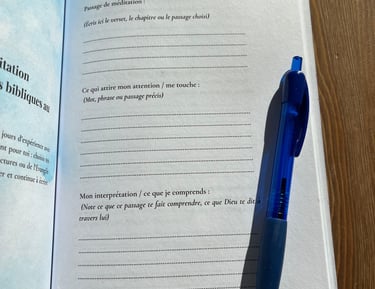 itation
s bibliques au
jours d'expérience avec
ctures ou de l'Évangile
er et continue à écrire
Passage de méditation :
(Écris ici le verset, le chapitre ou le passage choisi)
Ce qui attire mon attention / me touche :
(Mot, phrase ou passage précis)
Mon interprétation / ce que je comprends :
(Note ce que ce passage te fait comprendre, ce que Dieu te dit à
travers lui)